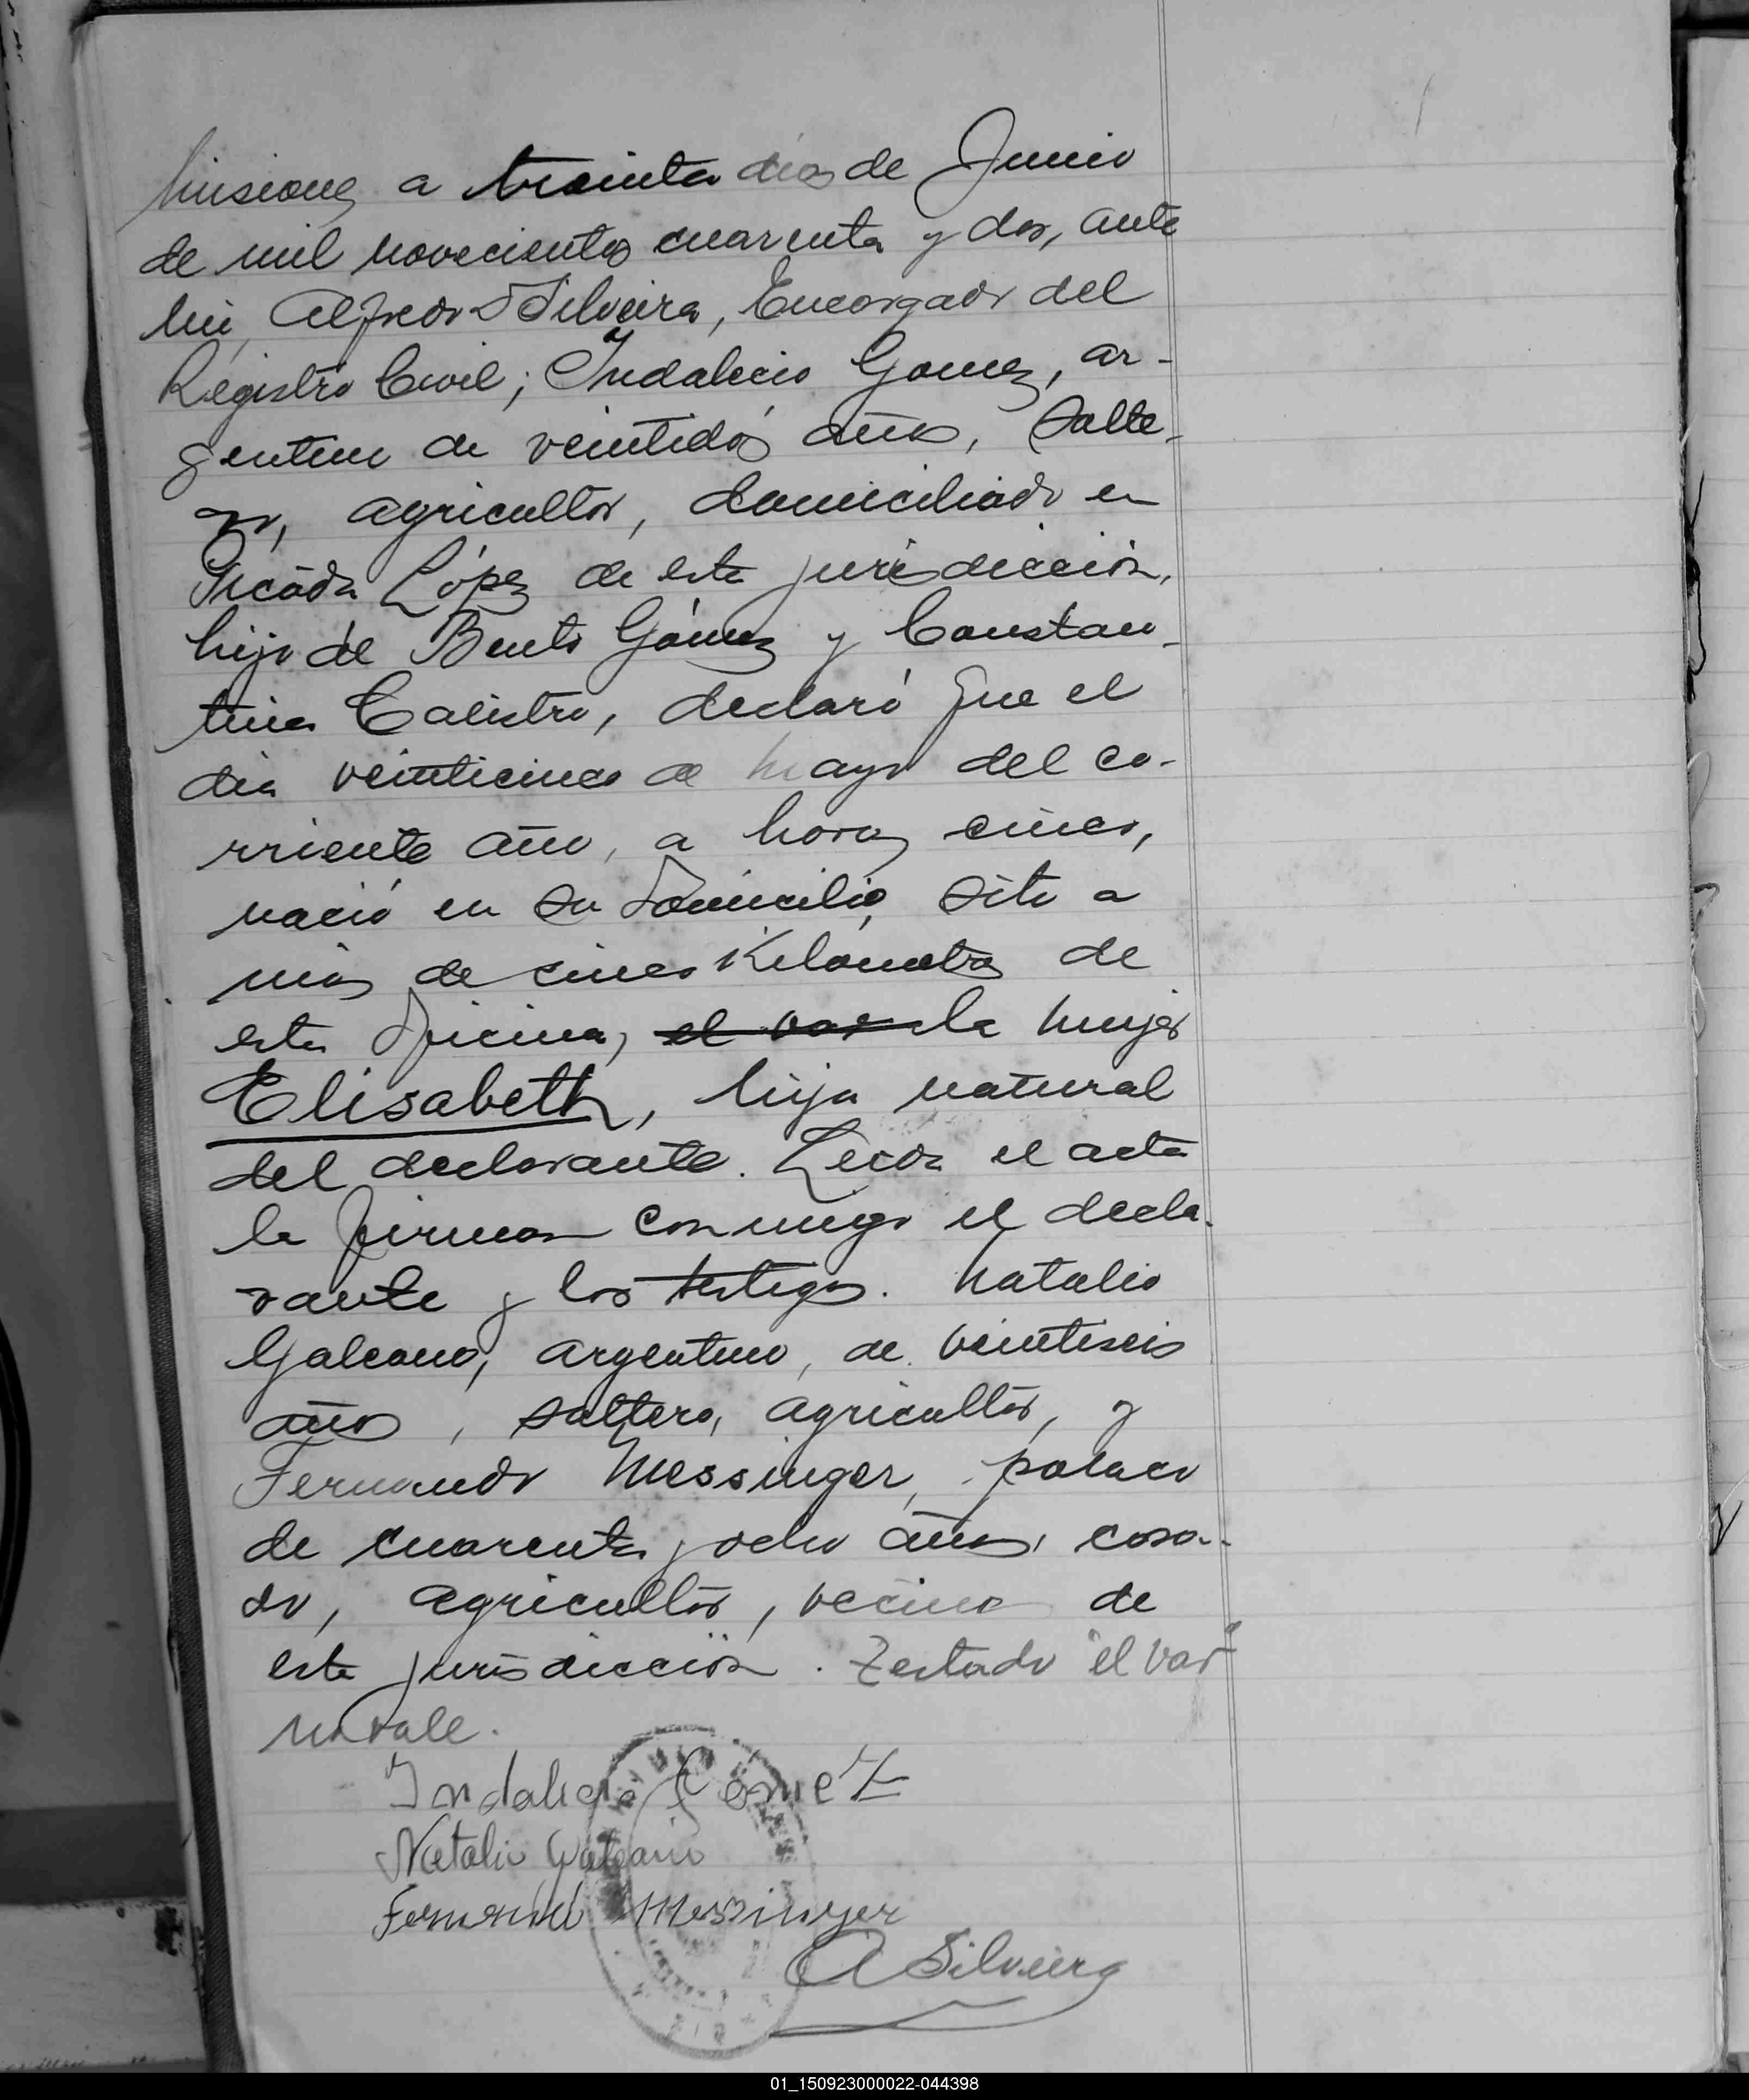 Misiones a treinta dias de Junio
de mil novecientos cuarenta y dos, ante
mi, Alfredo Silveira, Encargado del
Registro Civil; Indalecio Gomez, ar-
gentino de veintidós años, solte-
ro, agricultor, domiciliado en
Picada López de esta jurisdicción,
hijo de Bento Gómez y Constan-
tina Calistro, declaró que el
dia veinticinco de Mayo del co-
rriente año, a horas cinco,
nació en su domicilio, sito a
más de cinco Kilometros de
esta Oficina, el var la mujer
Elisabeth, hija natural
del declarante. Leida el acta
la firman conmigo el decla-
rante y los testigos. Natalio
Galeano, argentino, de veintiseis
años, soltero, agricultor, y
Fernando Messinger, polaco
de cuarenta y ocho años, casa-
do, agricultor, vecinos de
esta jurisdicción. Testado "el var"
no vale.
Indalecio Gomez
Natalio Galeano
Fernando Messinger
A Silveira
01_150923000022-044398